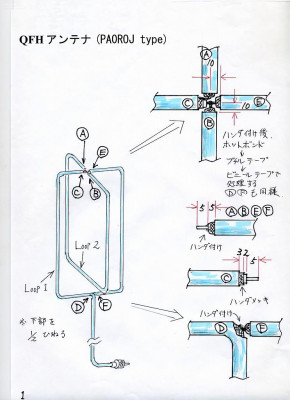 QFH アンテナ (PAOROJ type)
A
10
C
E
10
B
ハンダ付け後、
ホットボンド
↓
ブチルテープ
↓
ビニールテープで
処理する
D F も同様
A
E
C B
Loop 2
Loop 1
D F
※ 下部を
1/2 ひねる
5 5
A B E F
ハンダ付け
3 2 5
C
ハンダメッキ
ハンダ付け
D
F
1